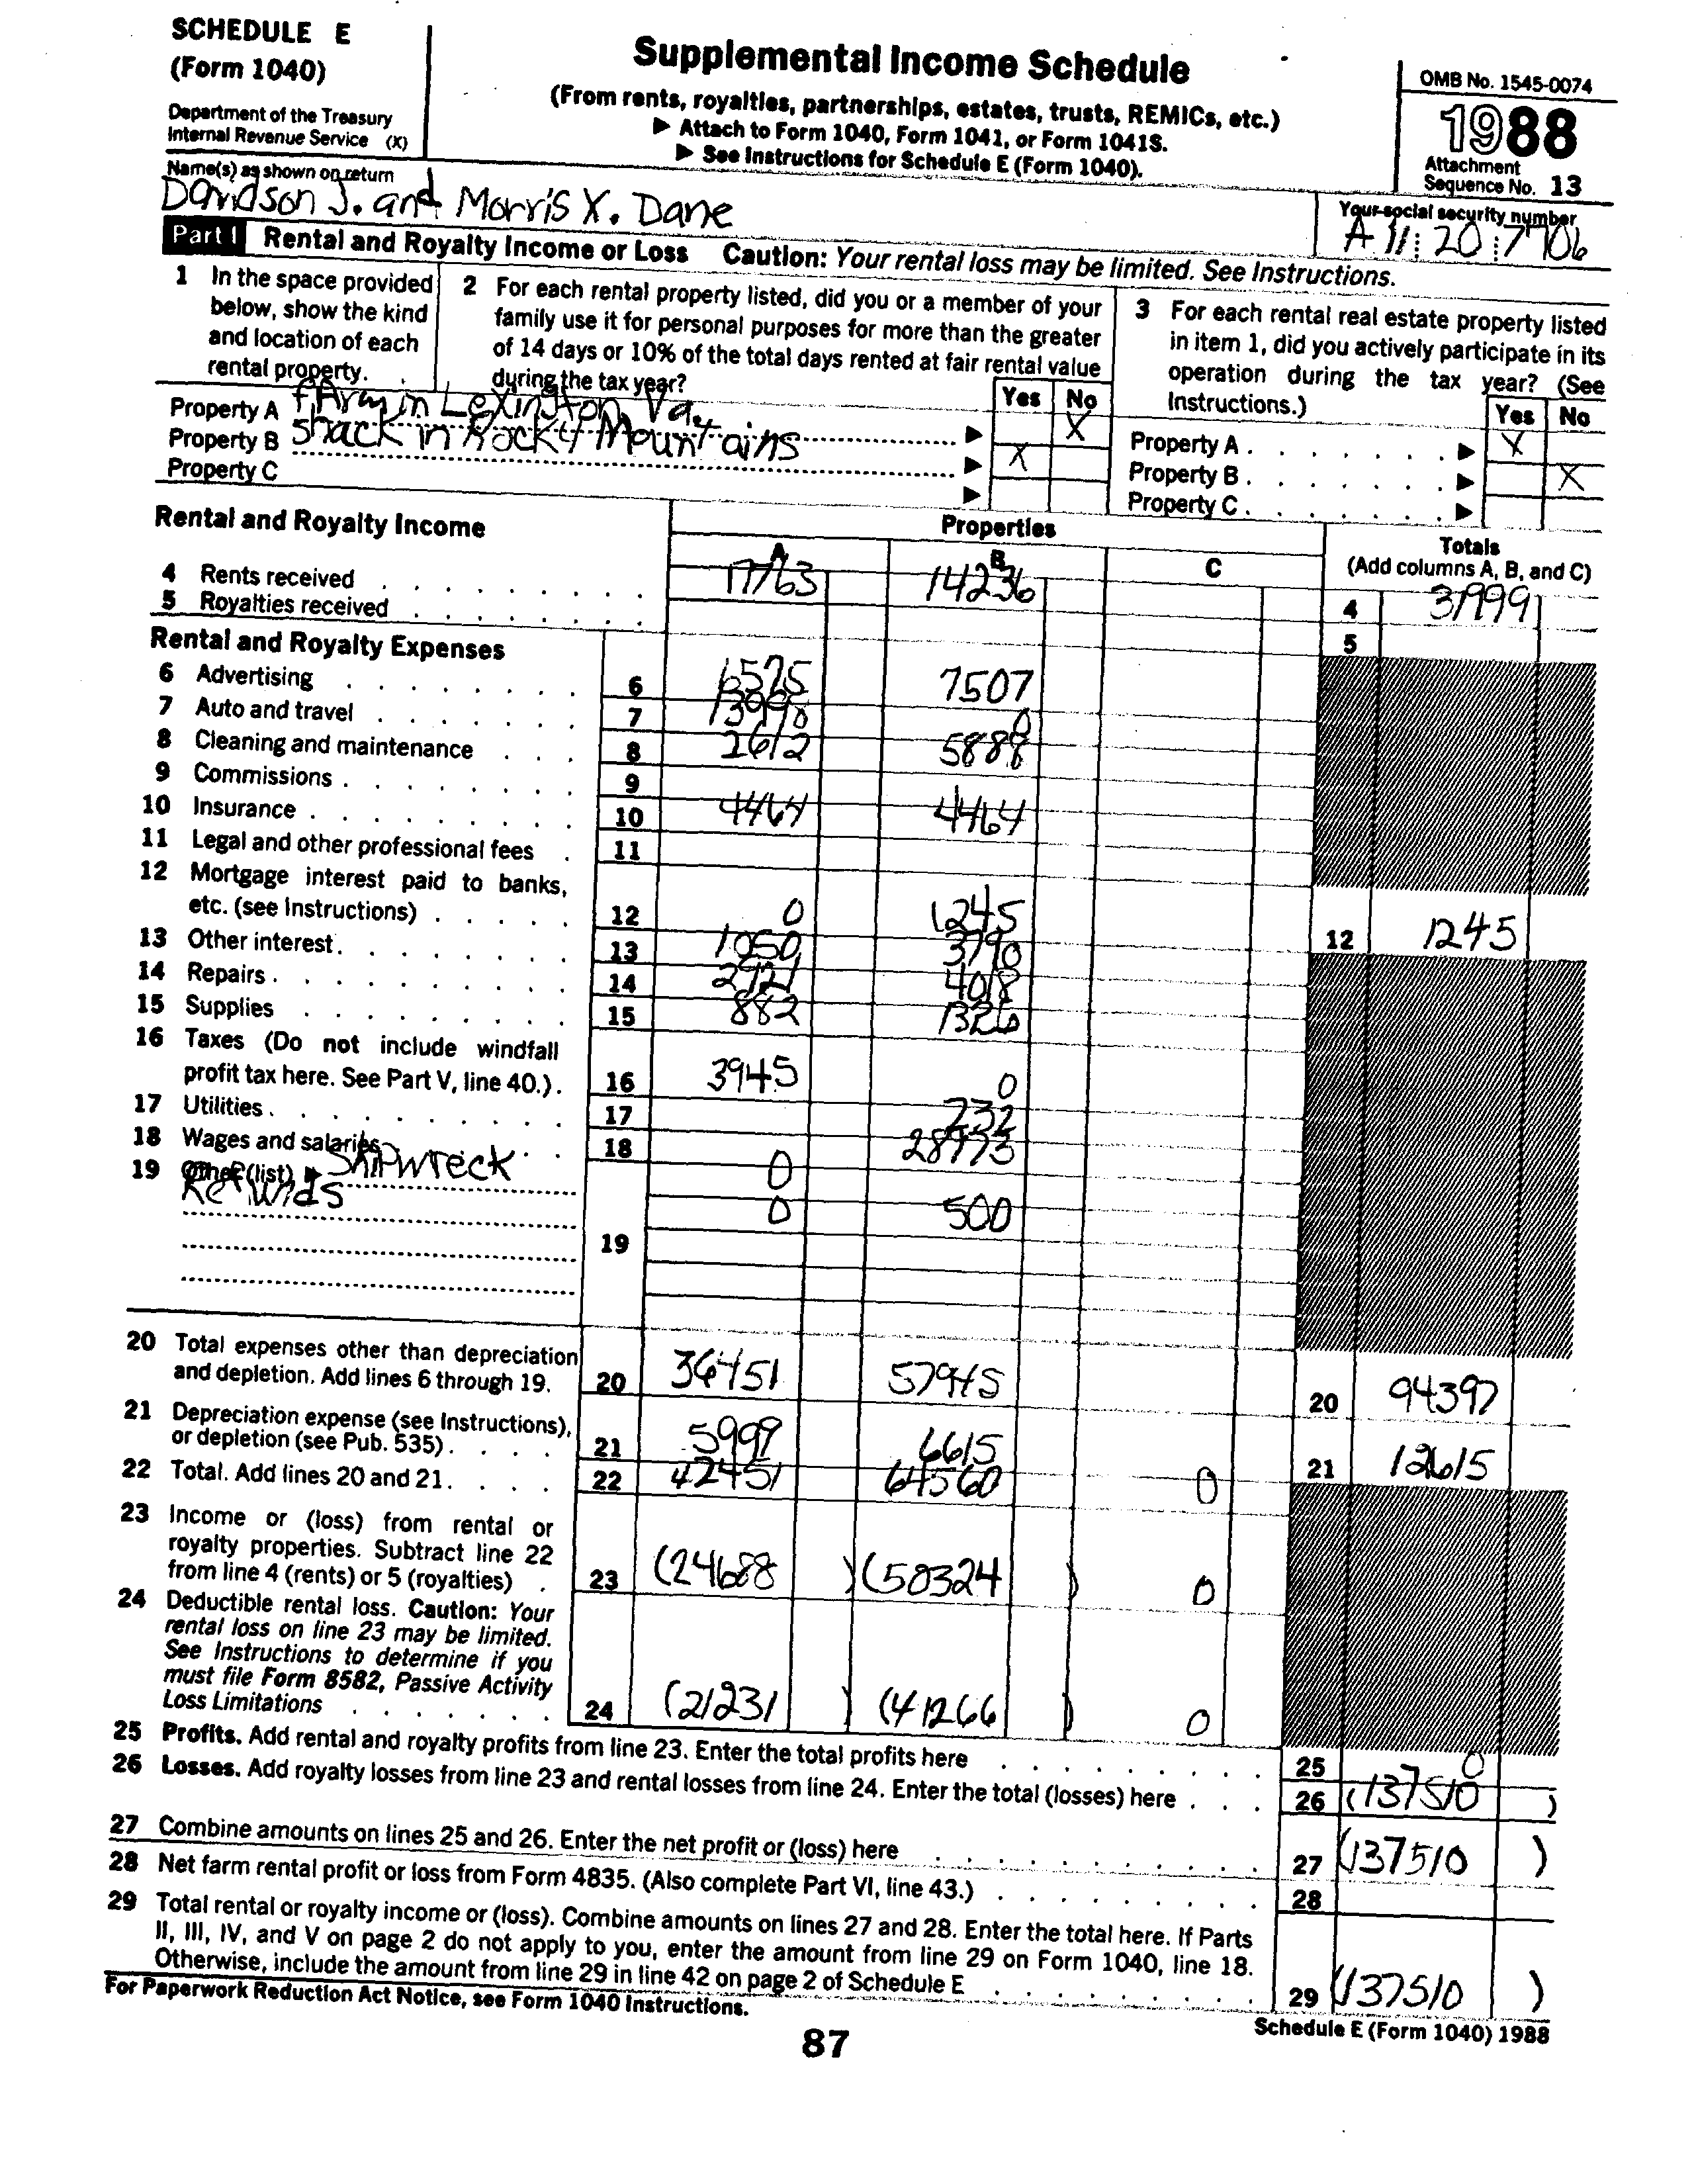 SCHEDULE E
(Form 1040)
Department of the Treasury
Internal Revenue Service (X)
Supplemental Income Schedule
(From rents, royalties, partnerships, estates, trusts, REMICs, etc.)
▶ Attach to Form 1040, Form 1041, or Form 1041S.
▶ See Instructions for Schedule E (Form 1040).
OMB No. 1545-0074
1988
Attachment
Sequence No. 13
Name(s) as shown on return
Davidson J. and Morris X. Dane
Your social security number
A 11 20 7706
Part I Rental and Royalty Income or Loss Caution: Your rental loss may be limited. See Instructions.
1 In the space provided
below, show the kind
and location of each
rental property.
2 For each rental property listed, did you or a member of your
family use it for personal purposes for more than the greater
of 14 days or 10% of the total days rented at fair rental value
during the tax year?
Yes No
3 For each rental real estate property listed
in item 1, did you actively participate in its
operation during the tax year? (See
Instructions.)
Yes No
Property A fArm in Lexington, Va. ▶ X
Property B Shack in Rocky Mountains ▶ X
Property C ▶
Property A . . . . . . . ▶ X
Property B . . . . . . . ▶ X
Property C . . . . . . . ▶
Rental and Royalty Income
Properties
A B C
Totals
(Add columns A, B, and C)
4 Rents received 17763 14236 4 31999
5 Royalties received 5
Rental and Royalty Expenses
6 Advertising 6 6575 7507
7 Auto and travel 7 13998 0
8 Cleaning and maintenance 8 2612 5888
9 Commissions 9
10 Insurance 10 4464 4464
11 Legal and other professional fees 11
12 Mortgage interest paid to banks,
etc. (see Instructions) 12 0 1245 12 1245
13 Other interest 13 1050 3790
14 Repairs 14 2921 4018
15 Supplies 15 882 1326
16 Taxes (Do not include windfall
profit tax here. See Part V, line 40.) 16 3945 0
17 Utilities 17 232
18 Wages and salaries 18 28973
19 Other (list) ▶ Shipwreck 0
0 500
19
20 Total expenses other than depreciation
and depletion. Add lines 6 through 19. 20 36451 57945 20 94397
21 Depreciation expense (see Instructions),
or depletion (see Pub. 535) 21 5999 6615 21 12615
22 Total. Add lines 20 and 21 22 42451 64560 0
23 Income or (loss) from rental or
royalty properties. Subtract line 22
from line 4 (rents) or 5 (royalties) 23 (24688 ) (50324 ) 0
24 Deductible rental loss. Caution: Your
rental loss on line 23 may be limited.
See Instructions to determine if you
must file Form 8582, Passive Activity
Loss Limitations 24 (21231 ) (41266 ) 0
25 Profits. Add rental and royalty profits from line 23. Enter the total profits here 25 0
26 Losses. Add royalty losses from line 23 and rental losses from line 24. Enter the total (losses) here 26 (137510 )
27 Combine amounts on lines 25 and 26. Enter the net profit or (loss) here 27 (137510 )
28 Net farm rental profit or loss from Form 4835. (Also complete Part VI, line 43.) 28
29 Total rental or royalty income or (loss). Combine amounts on lines 27 and 28. Enter the total here. If Parts
II, III, IV, and V on page 2 do not apply to you, enter the amount from line 29 on Form 1040, line 18.
Otherwise, include the amount from line 29 in line 42 on page 2 of Schedule E 29 (137510 )
For Paperwork Reduction Act Notice, see Form 1040 Instructions.
Schedule E (Form 1040) 1988
87